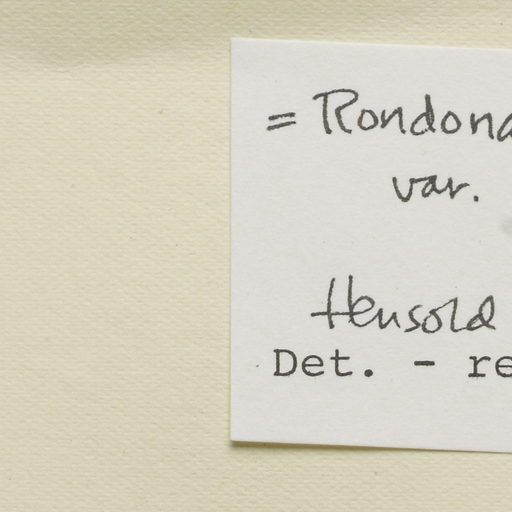 = Rondona
var.
Hensold
Det. - re